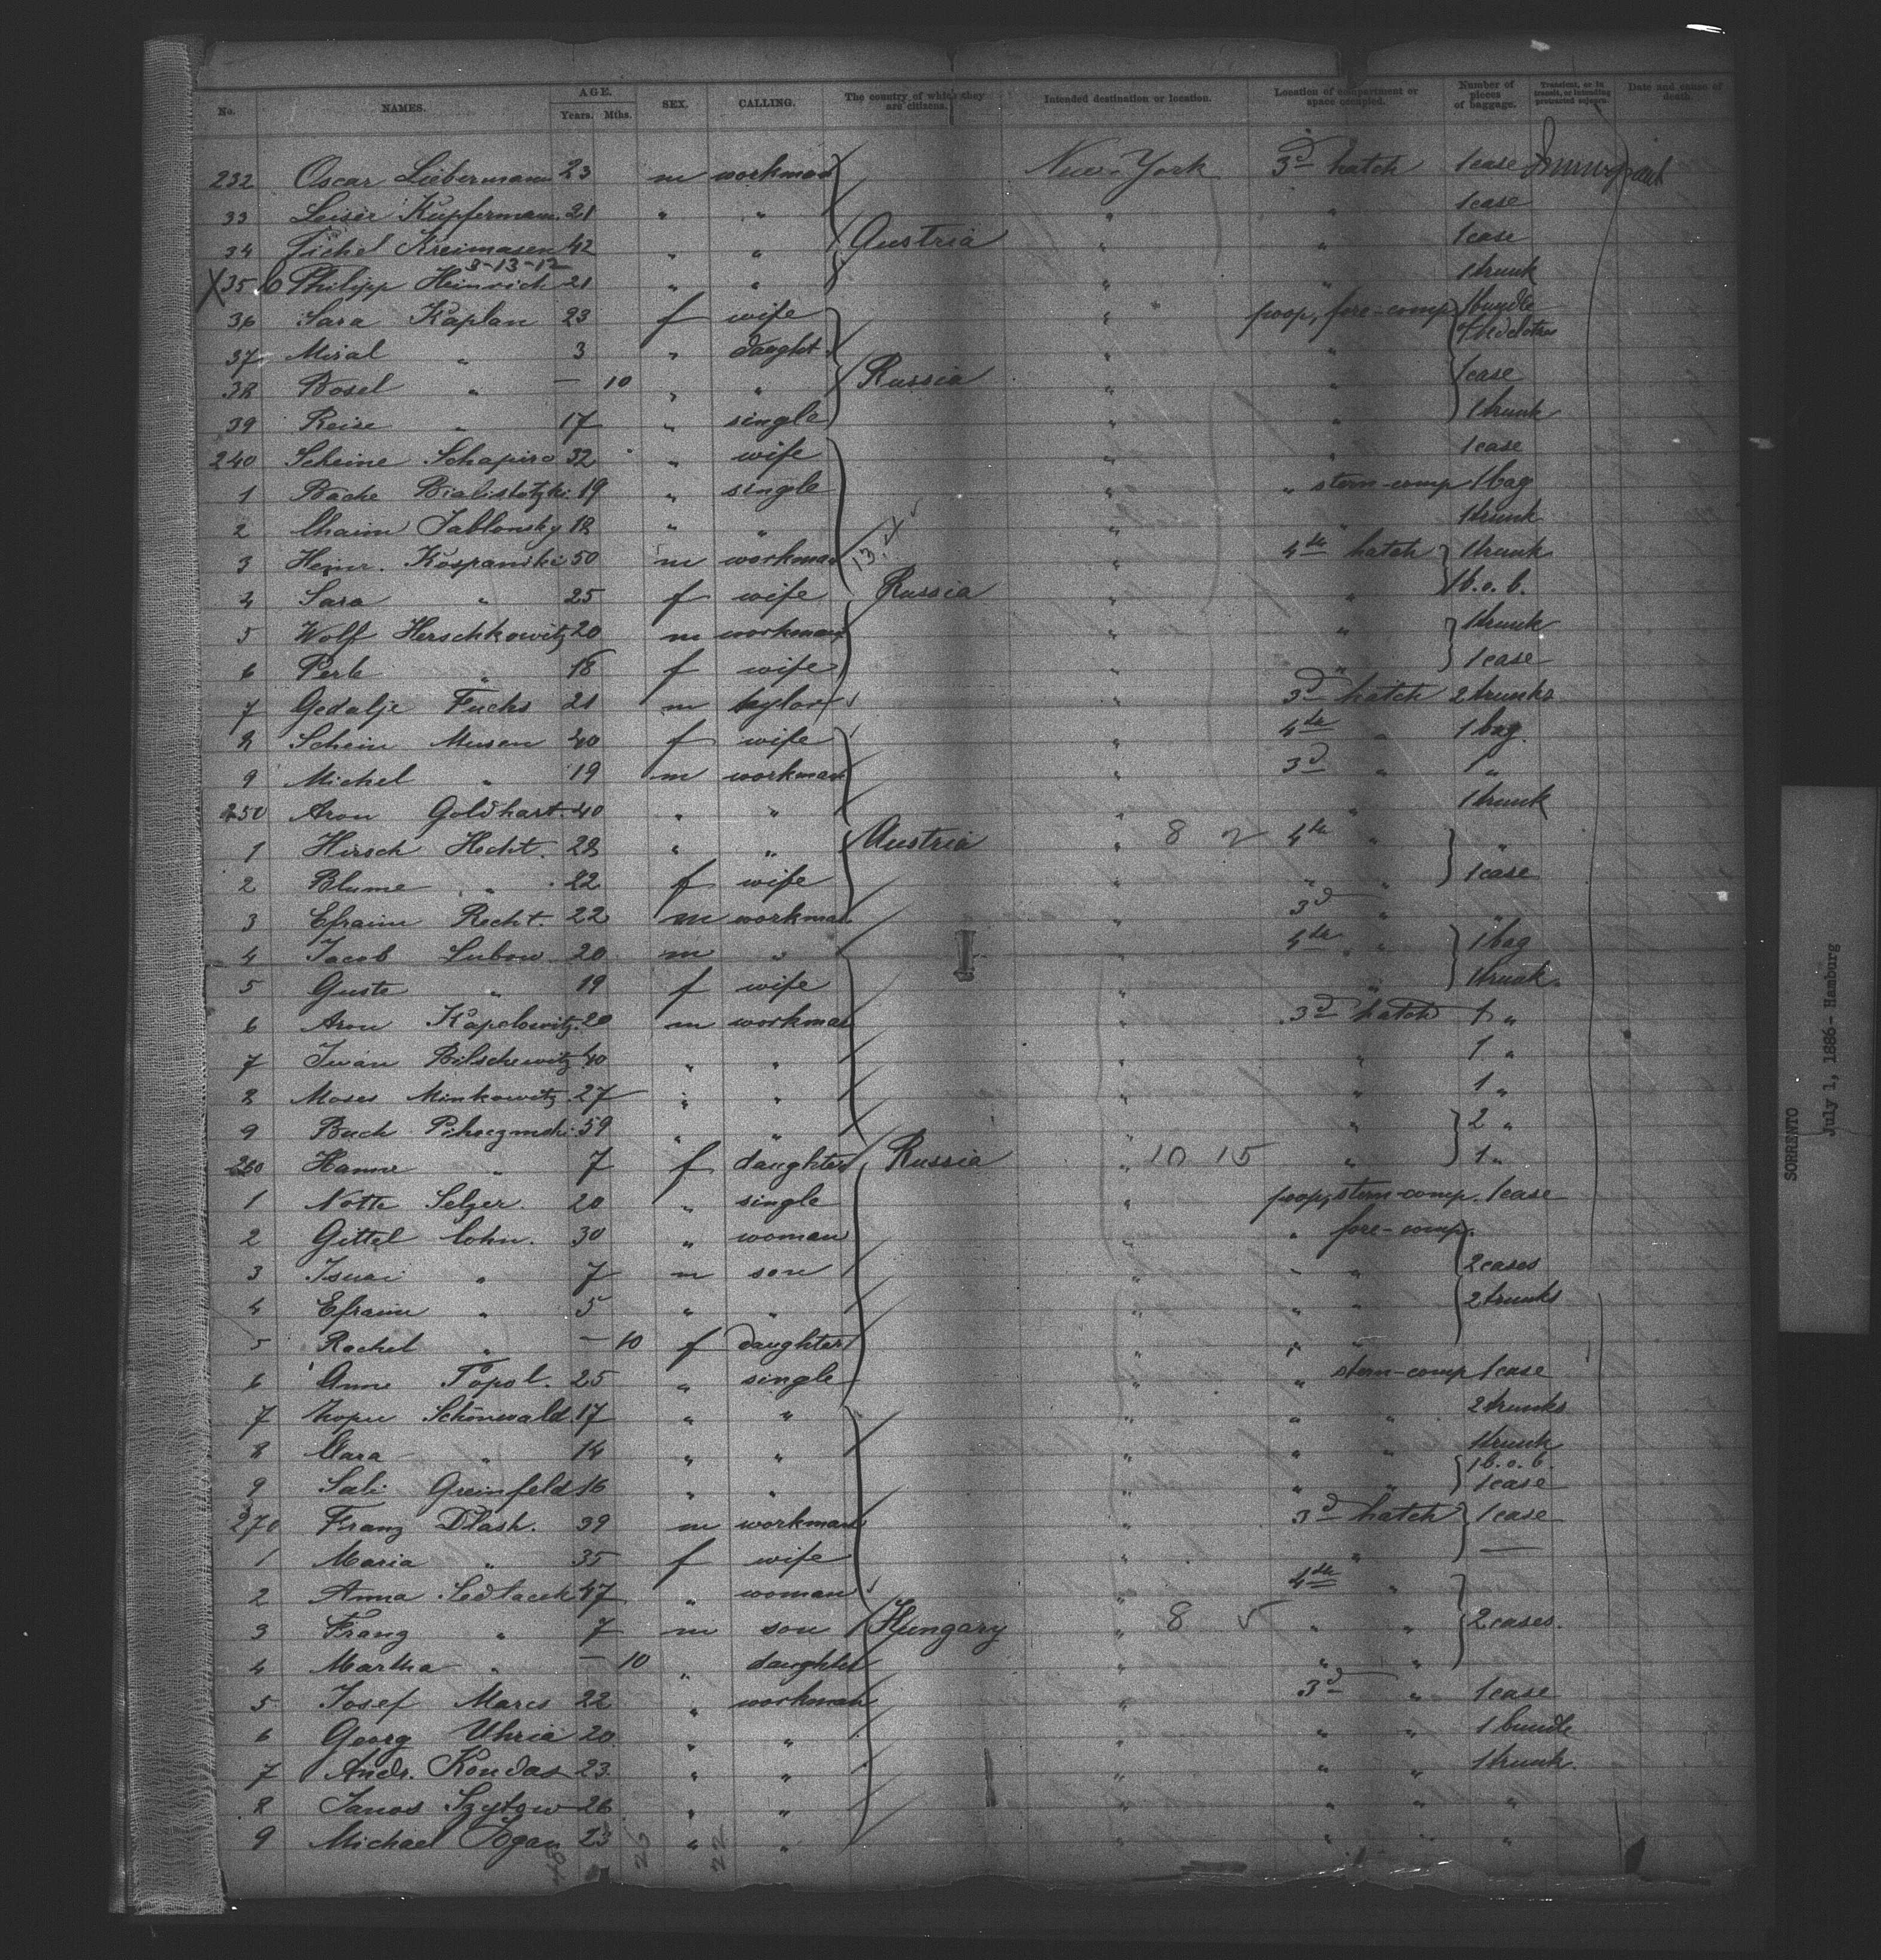 No. NAMES. AGE. Years. Mths. SEX. CALLING. The country of which they are citizens. Intended destination or location. Location of compartment or space occupied. Number of pieces of baggage. Transient, or in transit, or intending protracted sojourn. Date and cause of death.
232 Oscar Liebermann 23 m workman New-York 3d hatch 1 case Immigrant
33 Leiser Kupfermann 21 " " " " 1 case
34 Fichel Kreimasen 42 " " Austria " " 1 case
3-13-12
X 35 Philipp Heinrich 21 " " " " 1 trunk
36 Sara Kaplan 23 f wife " poop, fore-comp 1 bundle
37 Miral " 3 " daught " "
38 Bosel " — 10 " " Russia " 1 case
39 Reise " 17 " single " " 1 trunk
240 Scheine Schapiro 32 " wife " " 1 case
1 Bache Bialistotzki 19 " single " " stern-comp 1 bag
2 Chaim Jablonsky 18 " " " " 1 trunk
3 Heinr. Kospanski 50 m workman " 4th hatch 1 trunk
4 Sara " 25 f wife Russia " " 1 b.o.b.
5 Wolf Herschkowitz 20 m workman " " 1 trunk
6 Perle " 18 f wife " " 1 case
7 Gedalje Fuchs 21 m taylor " 3d hatch 2 trunks
8 Schein Musen 40 f wife " 4th " 1 bag.
9 Michel " 19 m workman " 3d " 1 "
250 Aron Goldhart 40 " " " " 1 trunk
1 Hirsch Hecht. 28 " " Austria " 8 4th " "
2 Blume " 22 f wife " " " 1 case
3 Efraim Recht. 22 m workman " 3d " "
4 Jacob Lubow 20 m " " 4th " 1 bag
5 Guste " 19 f wife " " 1 trunk.
6 Aron Kapelowitz 20 m workman " 3d hatch 1 "
7 Iwan Bilschewitz 40 " " " " 1 "
8 Moses Minkowitz 27 " " " " 1 "
9 Buch 59 " " " " 2 "
260 Hanne " 7 f daughter Russia " 10 15 " 1 "
1 Notte Selzer. 20 " single " poop, stern-comp. 1 case
2 Gittel Cohn. 30 " woman " " fore-comp.
3 " 7 m son " " " 2 cases
4 Efraim " 5 " " " " " 2 trunks
5 Rachel " — 10 f daughter " " "
6 Anne Topol. 25 " single " " stern-comp 1 case
7 Schönwald 17 " " " " " 2 trunks
8 Clara " 14 " " " " " 1 trunk
1 b.o.b.
9 Sali Greinfeld 16 " " " " " 1 case
270 Franz Dlask. 39 m workman " 3d hatch 1 case
1 Maria " 35 f wife " " —
2 Anna Sedlacek 47 " woman " 4th "
3 Franz " 7 m son Hungary " 8 " " 2 cases.
4 Martha " — 10 " daughter " " "
5 Josef Mares 22 " workman " 3d " 1 case
6 Georg Uhria 20 " " " " " 1 bundle
7 Andr. Kondas 23 " " " " " 1 trunk.
8 Janos Szytow 26 " " " " " "
9 Michael 23 " " " " " "
26 22
SORRENTO
July 1, 1886 - Hamburg